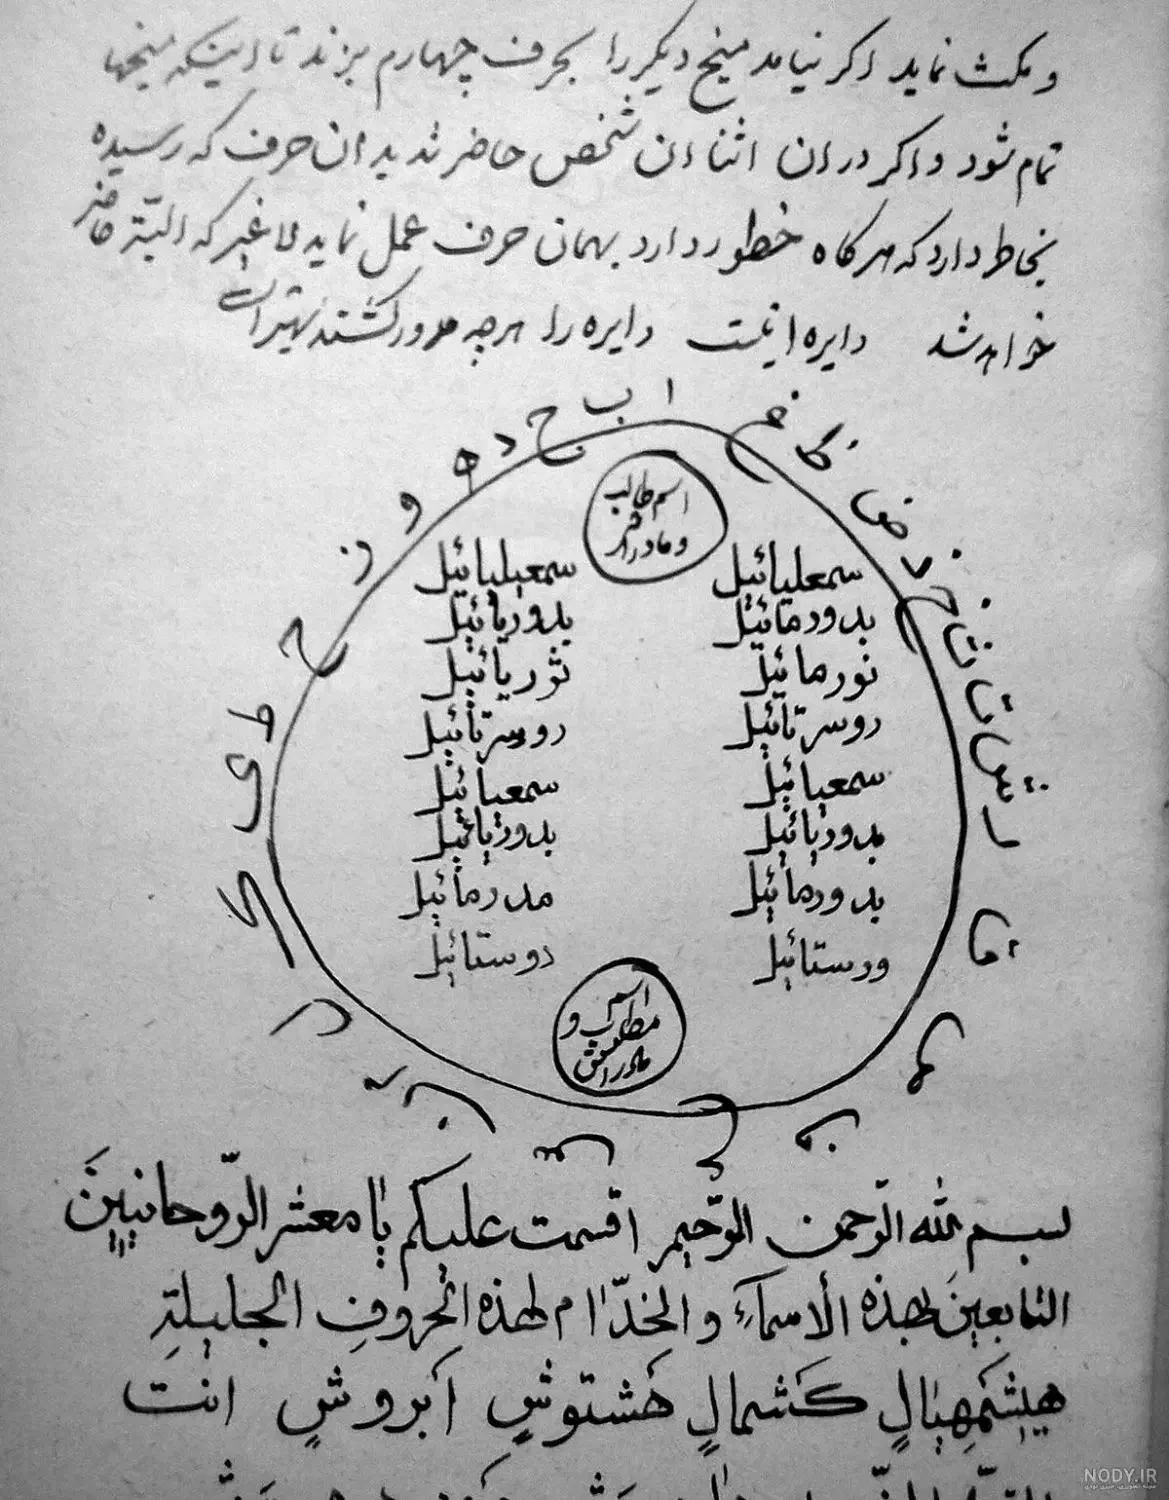 و مکث نماید اکر نیامد میخ دیکر را بحرف چهارم بزند تا اینکه میخها
تمام شود و اکر در ان اثنا ان شخص حاضر شد بد ان حرف که رسیده
بخاطر دارد که هر کاه خطور دارد بهمان حرف عمل نماید لا غیر که البتّه حاضر
خواهد شد دایره اینست دایره را هرچه مدور کشند بهتر است
ا ب ج د ه و ز ح ط ی ک ل م ن س ع ف ص ق ر ش ت ث خ ذ ض ظ غ
اسم طالب
و مادرش
سمعلیائیل
بدودمائیل
نورهائیل
روسرتائیل
سمعیائیل
بدودیائیل
بدودهائیل
ودستائیل
سمعیلیائیل
بدوریائیل
نوریائیل
روسرتائیل
سمعیائیل
بدودیائیل
مدرمائیل
دوستائیل
اسم
مطلوب و
مادرش
بسم الله الرّحمن الرّحیم اقسمت علیکم یا معشر الرّوحانیینَ
التابعینَ لهذه الأسمآءِ و الخدّام لهذه الحروفِ الجلیلةِ
هیشمهیالٍ کَشمالٍ هَشتوشٍ اَبروشٍ انتَ
NODY.IR